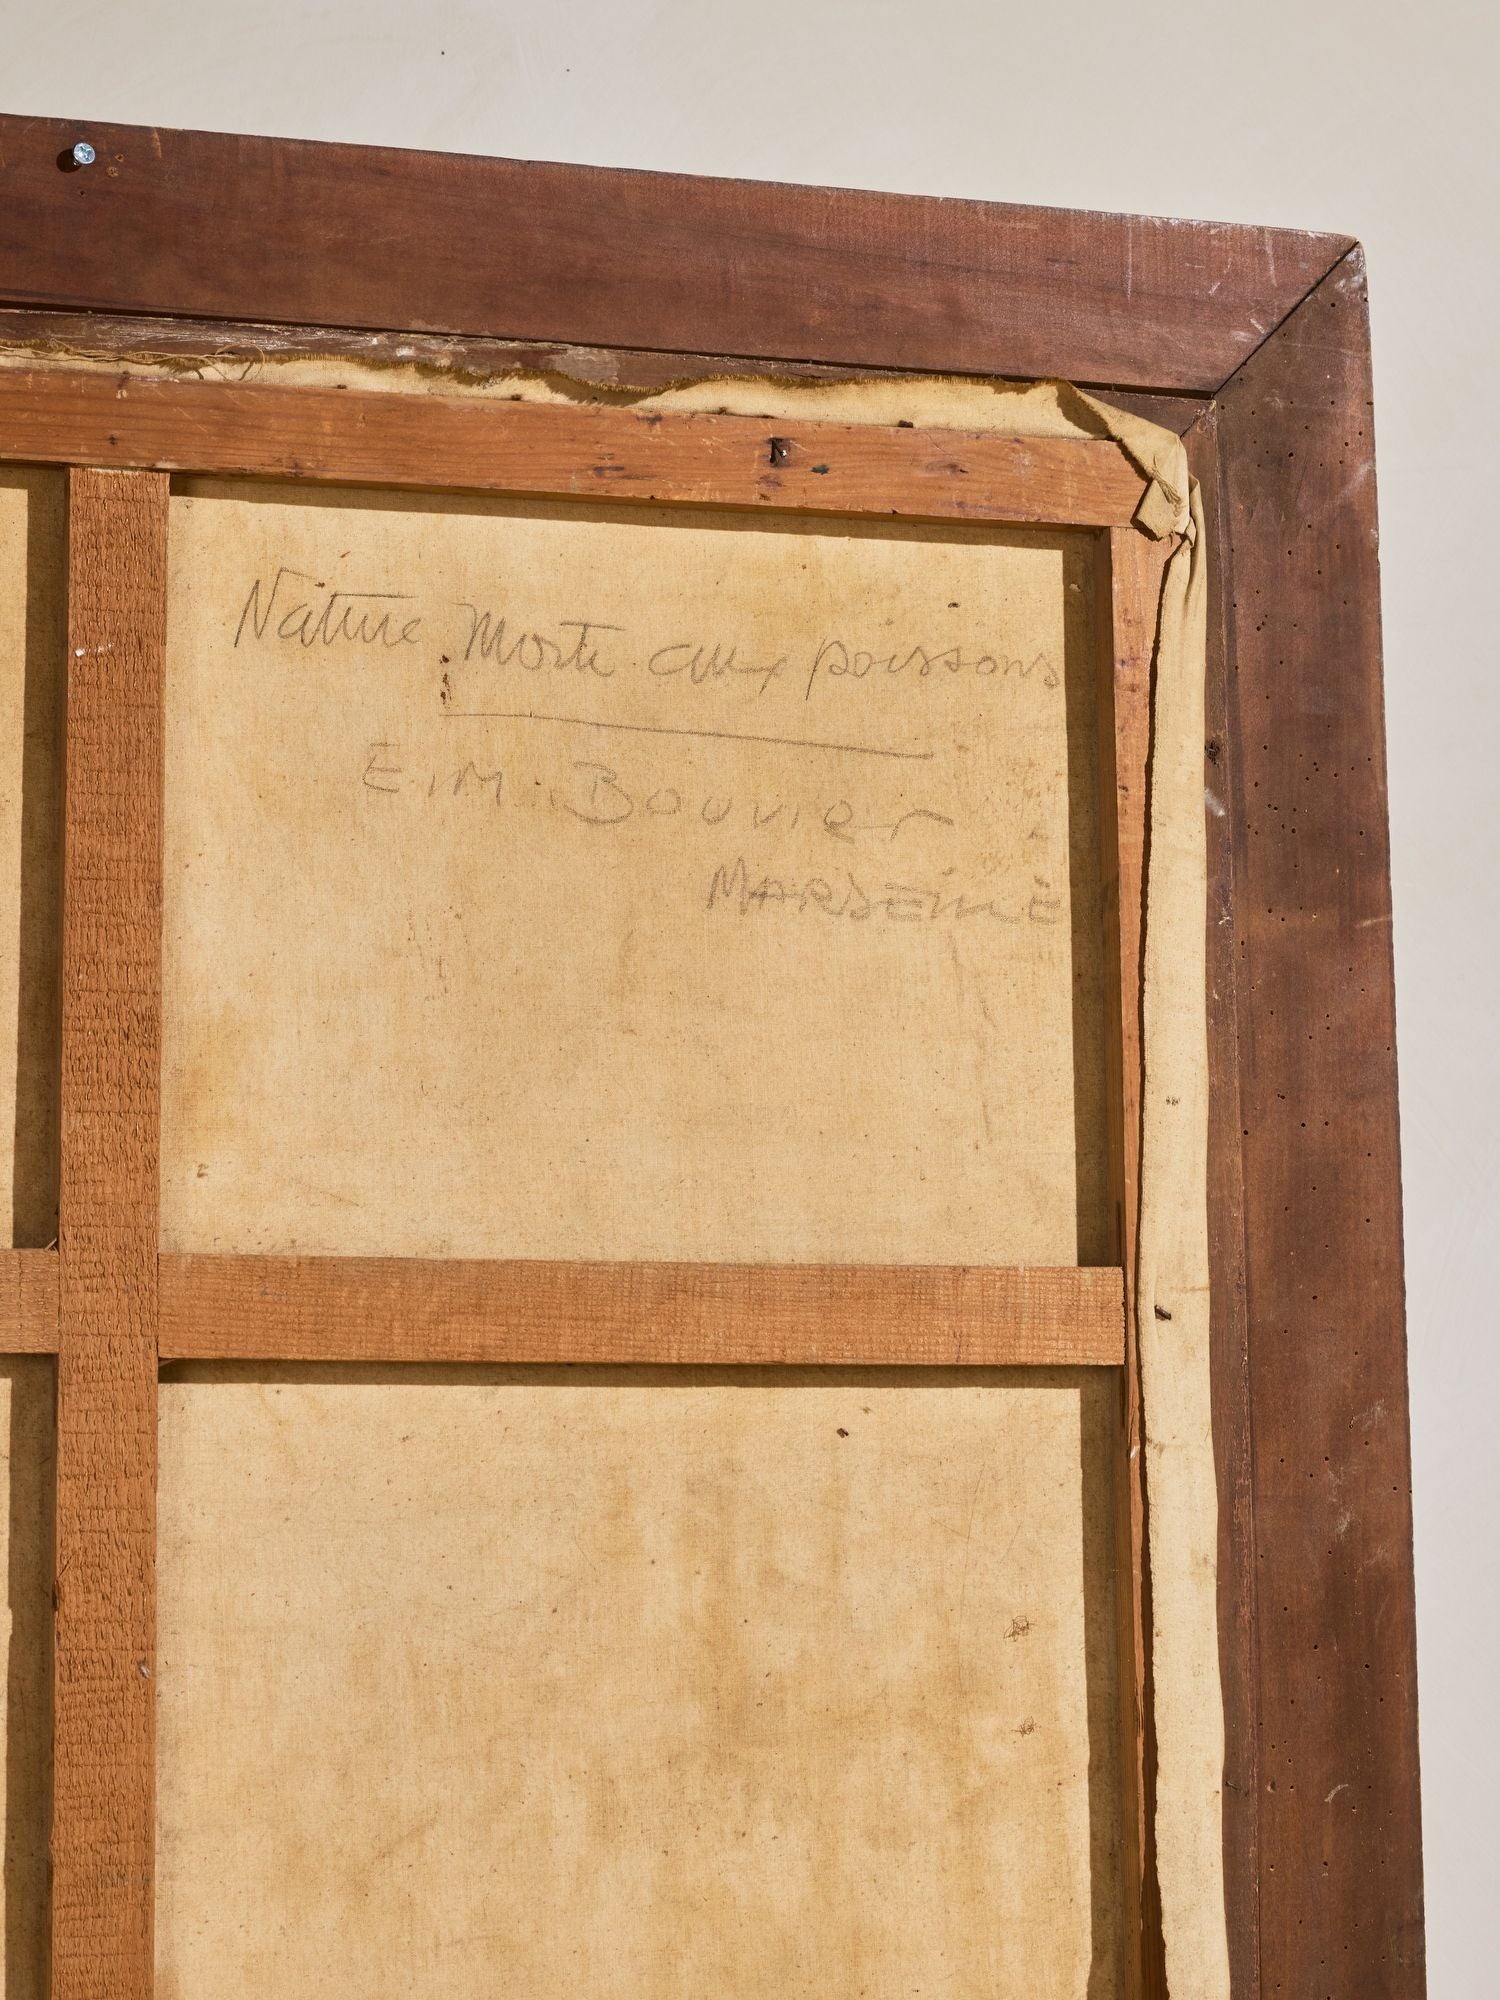 Nature Morte aux poissons
E.M. Bouvier
MARSEILLE